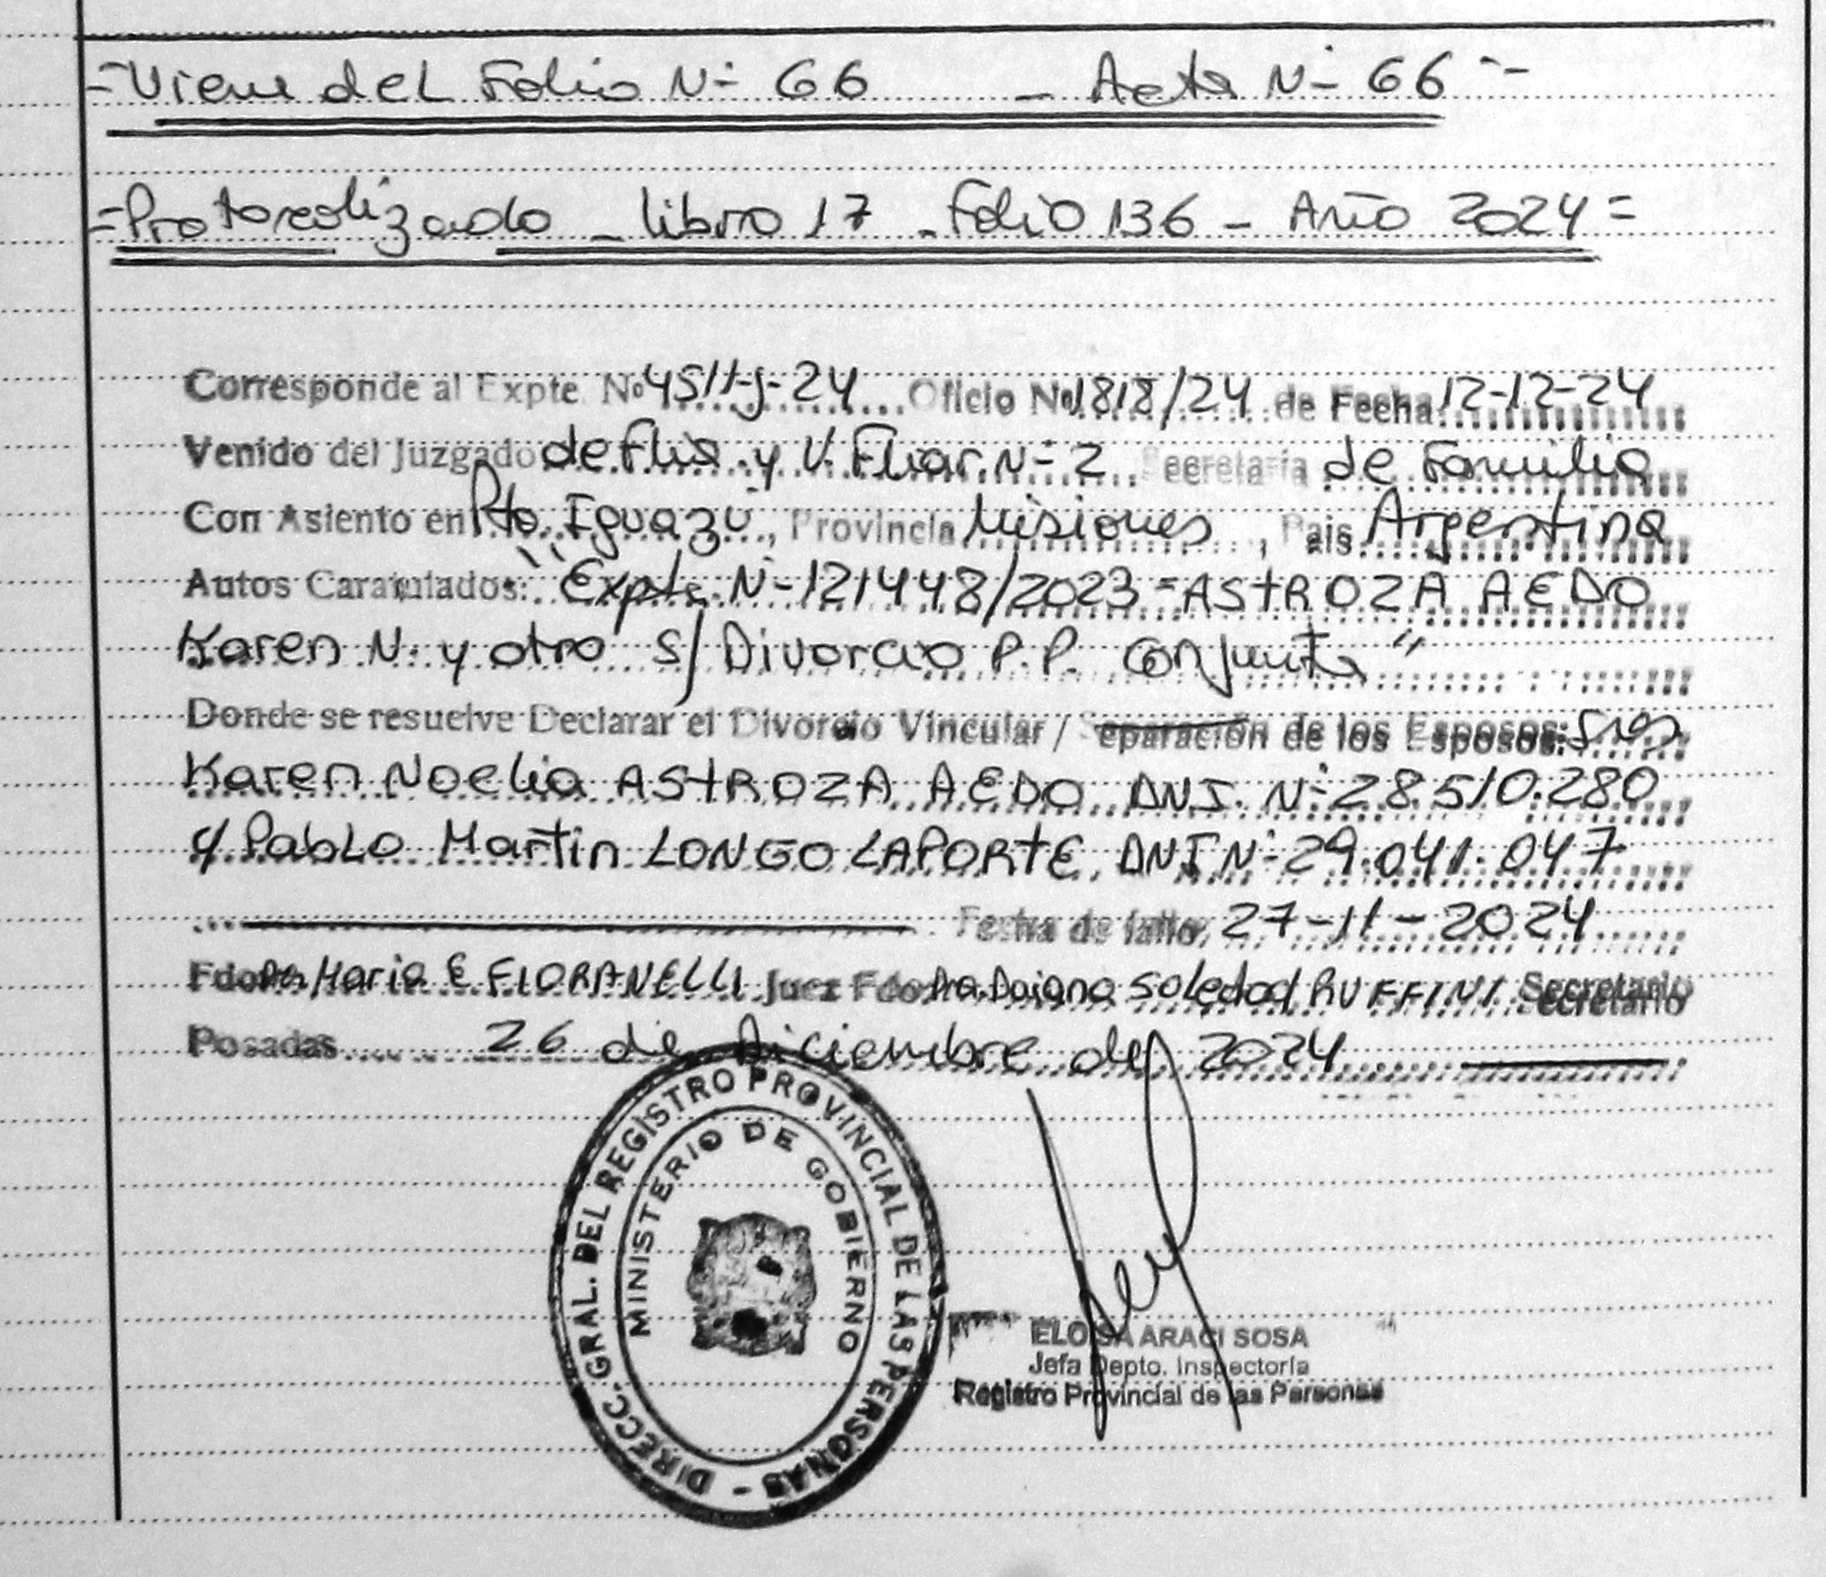 =Viene del Folio N- 66 - Acta N- 66 --
=Protocolizado - libro 17 - Folio 136 - Año 2024 =
Corresponde al Expte. Nº 4511-J-24 Oficio Nº 1818/24 de Fecha 12-12-24
Venido del Juzgado de Flia y V. Fliar. N- 2 Secretaria de Familia
Con Asiento en Pto. Iguazú, Provincia Misiones, Pais Argentina
Autos Caratulados: "Expte. N- 121448/2023 = ASTROZA AEDO
Karen N. y otro S/ Divorcio P.P. Conjunta"
Donde se resuelve Declarar el Divorcio Vincular / Separación de los Esposos: Sres
Karen Noelia ASTROZA AEDO DNI. N- 28.510.280
y Pablo Martin LONGO LAPORTE, DNI N- 29.041.047
Fecha de fallo, 27-11-2024
Fdo. Dra Maria E FIORANELLI Juez Fdo Dra Daiana Soledad RUFFINI Secretario
Posadas 26 de Diciembre del 2024
DIRECC. GRAL. DEL REGISTRO PROVINCIAL DE LAS PERSONAS -
MINISTERIO DE GOBIERNO
ELOISA ARACI SOSA
Jefa Depto. Inspectoría
Registro Provincial de las Personas